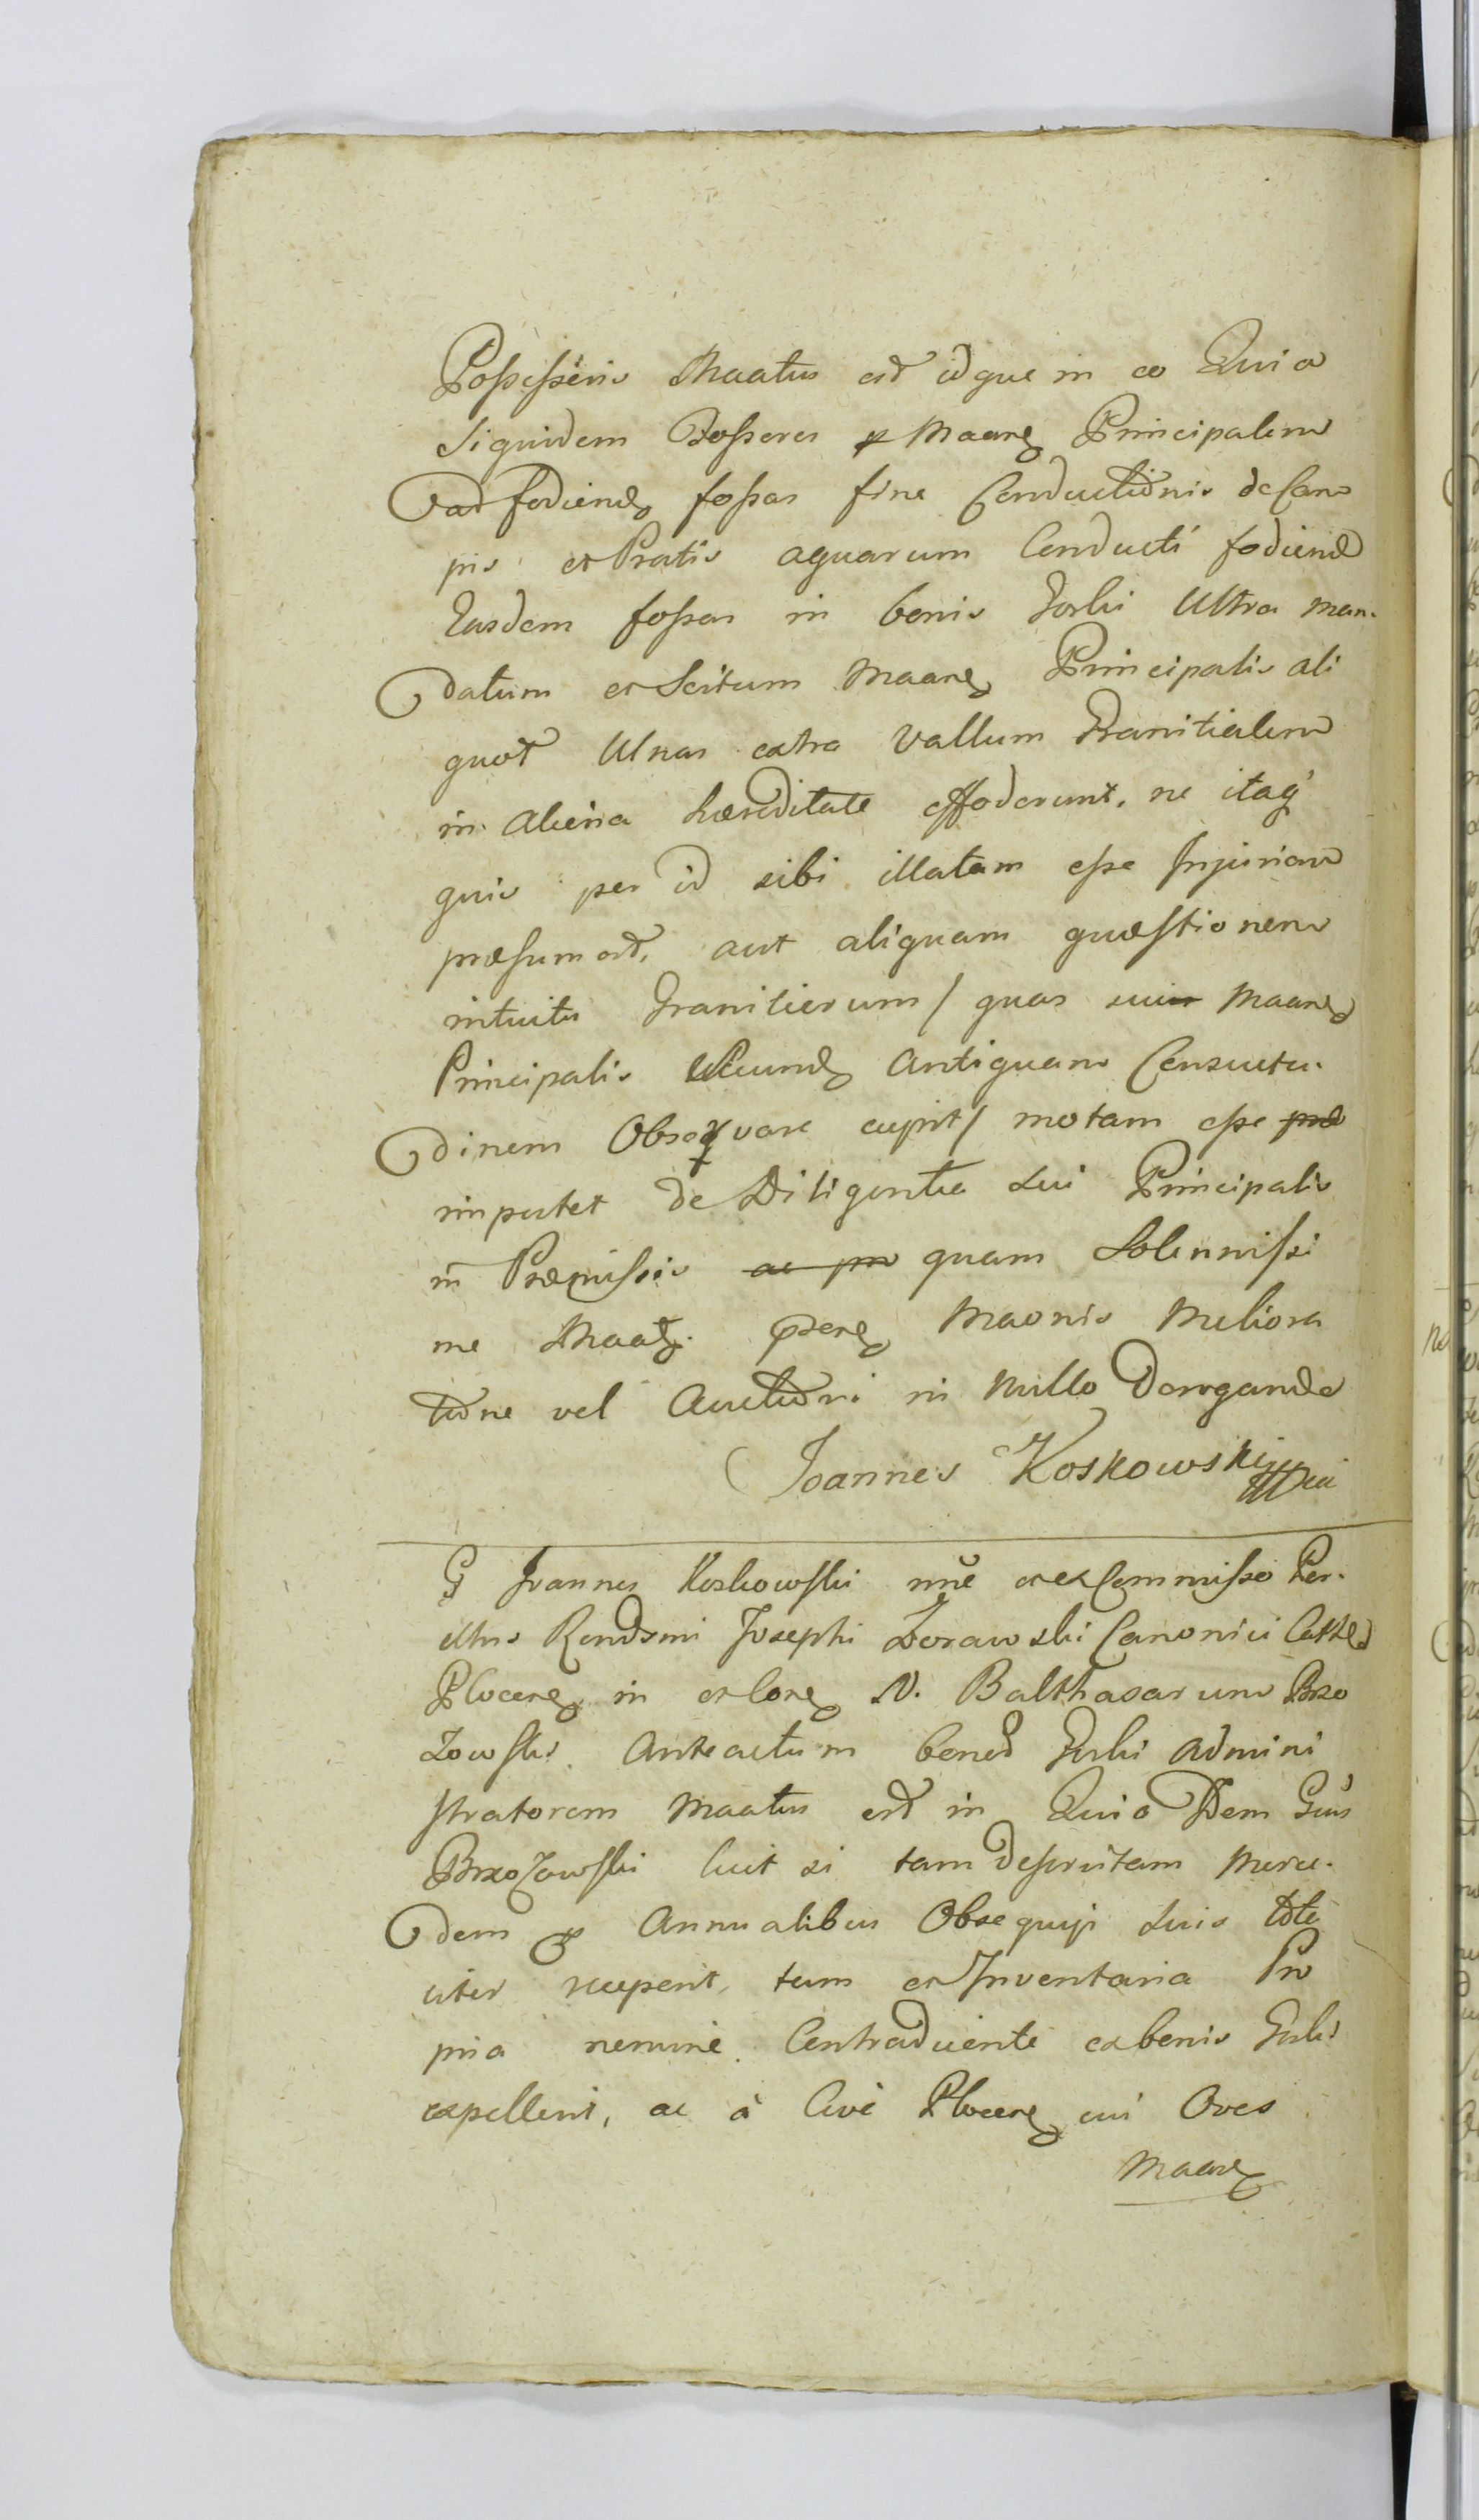 Possessoris Maatus est idque in eo Quia
Siquidem Fossores p Maanẽ Principalem
ad fodiend fossas fine Conductionis de Cam
pis et Pratis aquarum Conducti fodiend
Easdem fossas in bonis Gorki Ultra man.
datum et Scitum Maanẽ Principalis ali
quot Ulnas extra Vallum Granitialem
in Aliena hæreditate effoderunt, ne itaq
quis per id sibi illatam esse Injuriam
præsumat, aut aliquam quæstionem
intuitu Granitierum / quas Maanẽ
Principalis secund Antiquam Consvetu.
dinem Observare cupit / motam esse præ
imputet de Diligentia Sui Principalis
in Præmissis ac præ quam Solennissi
me Maatẽ. pserẽ Maonis Meliora
tione vel Auctioni in Nullo Doroganda
Joannes Koskowski mpia
G Joannes Koskowski nne et ex Commisso Per.
illris Rendsmi Josephi Zorawski Canonici Cathed
Plocenẽ in et Conẽ N. Balthasarum Brzo
Zowski Anteactum bonor Gorki Admini
stratorem Maatus est in Quia Idem Gnus
BrzoZowski licet si tam deservitam Merce.
dem p Annualibus Obsequijs Suis tote
uter receperit, tum et Inventaria Pro
pria nemine Contradicente ex bonis Gorki
expellerit, ac à Cive Plocenẽ cui Oves
Maanẽ